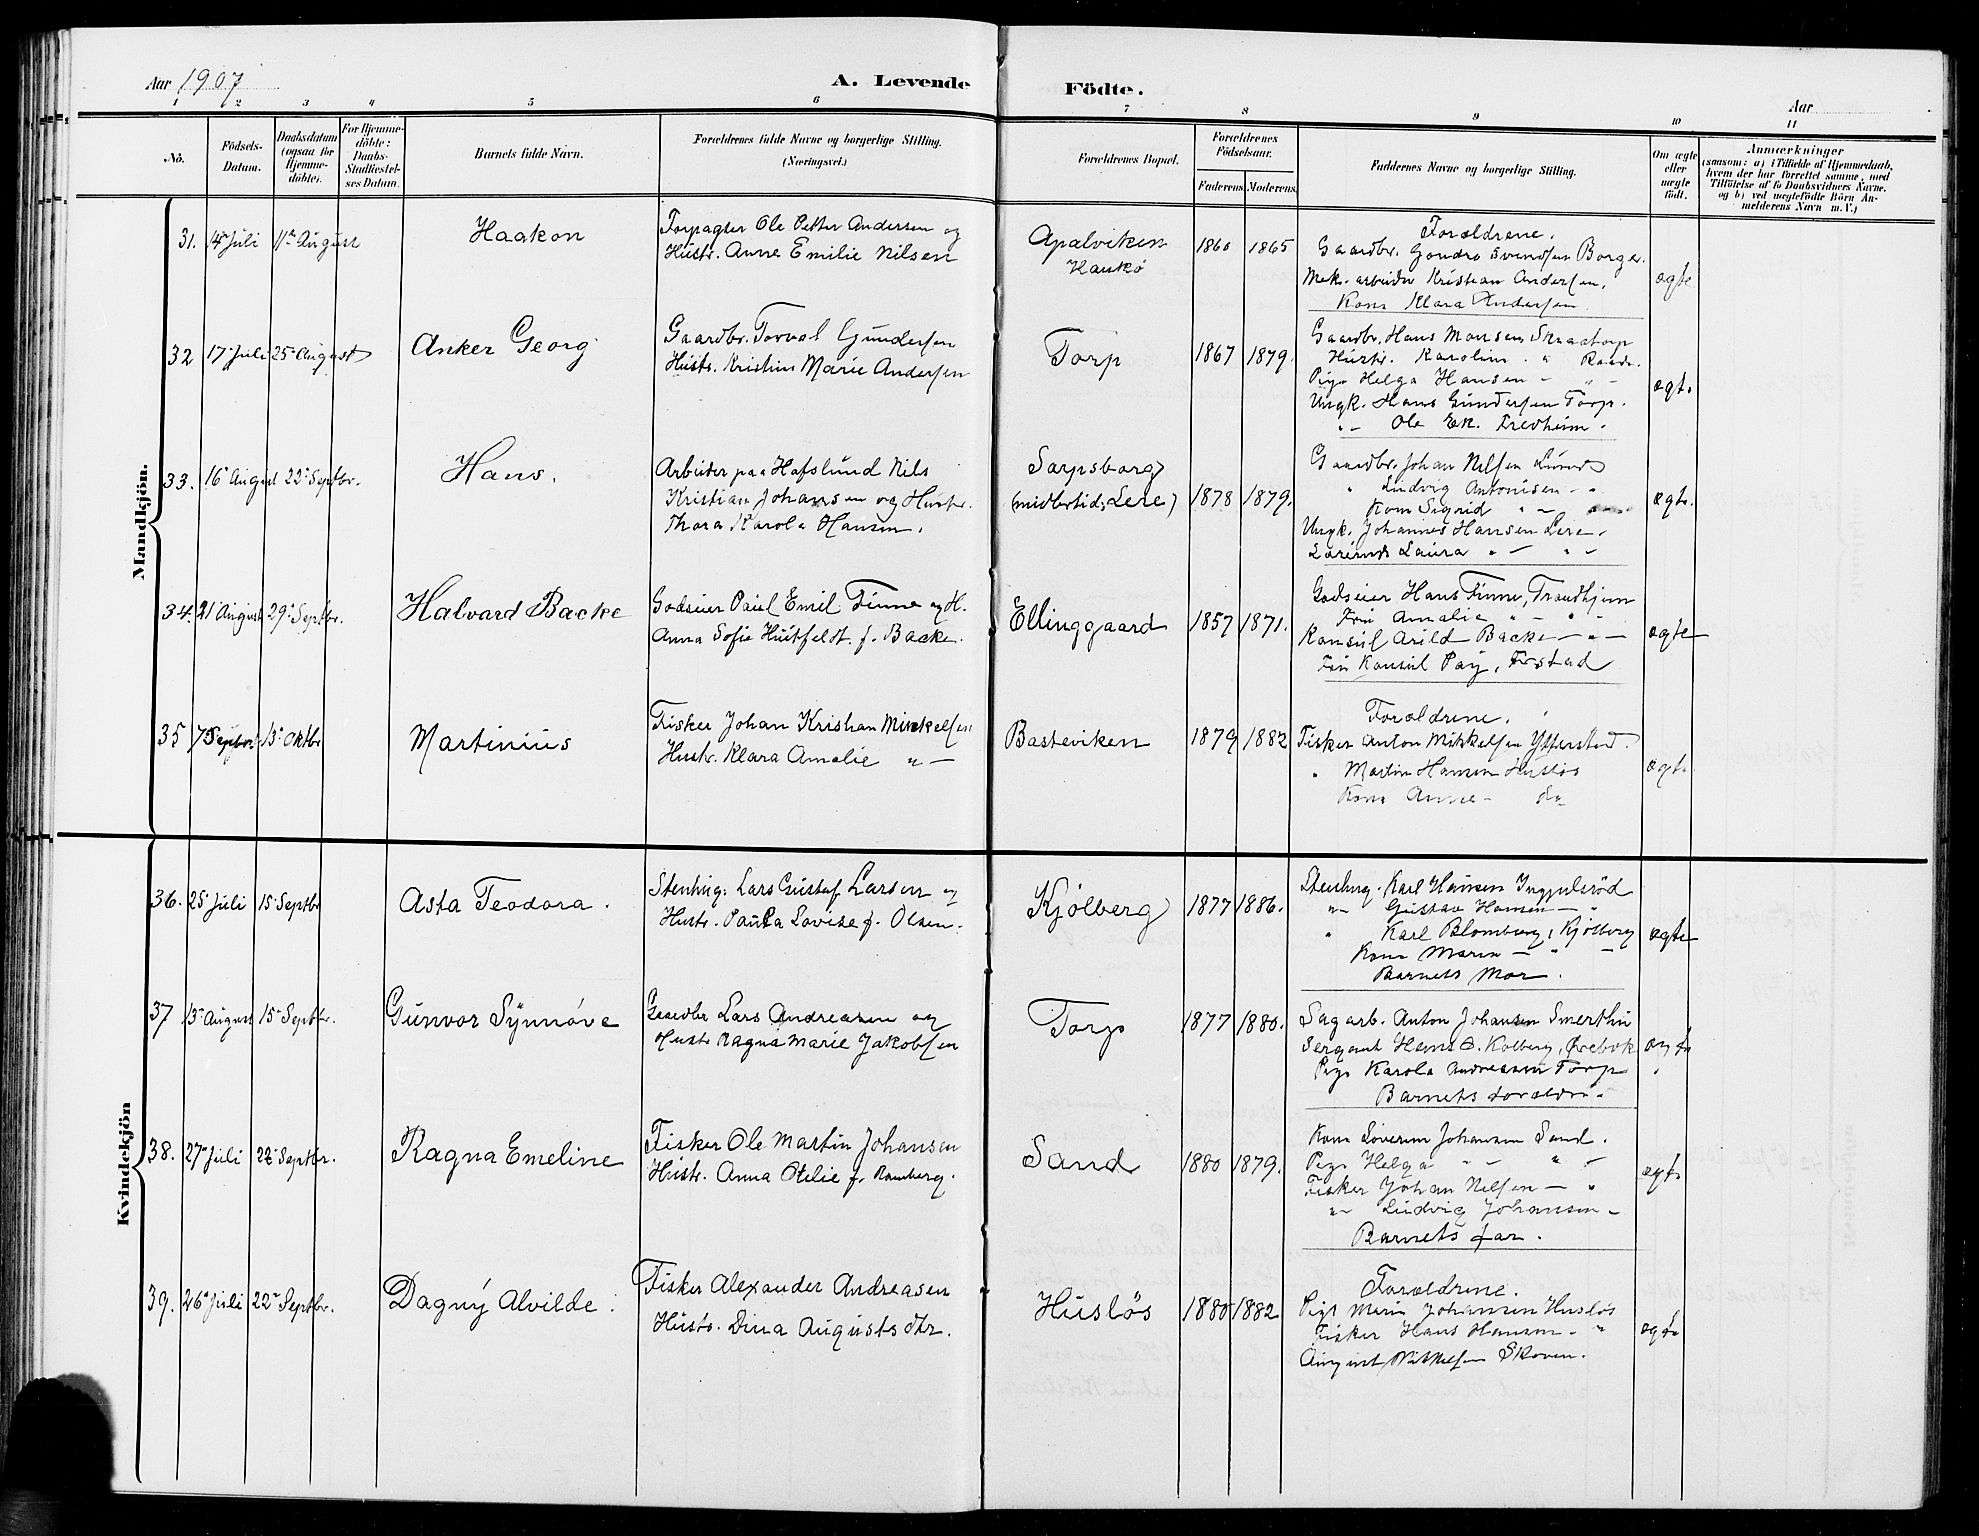 Aar 1907 A. Levende Födte. Aar
1 2 3 4 5 6 7 8 9 10 11
No.
Födsels-
Datum.
Daabsdatum
(ogsaa for
Hjemme-
döbte).
For Hjemme-
döbte:
Daabs-
Stadfæstel-
ses Datum.
Barnets fulde Navn.
Forældrenes fulde Navne og borgerlige Stilling.
(Næringsvei.)
Forældrenes Bopæl.
Forældrenes
Födselsaar.
Faderens. Moderens.
Faddernes Navne og borgerlige Stilling.
Om ægte
eller
uægte
födt.
Anmærkninger
(saasom: a) i Tilfælde af Hjemmedaab,
hvem der har forrettet samme, med
Tilföielse af to Daabsvidners Navne.
og b) ved uægtefödte Börn An-
melderens Navn m. V.)
Mandkjön.
31. 14 Juli 11 August Haakon
Forpagter Ole Petter Andersen og
Hustr. Anne Emilie Nilsen
Apalviken
Hankø
1860 1865
Forældrene.
Gaardbr. Svendsen Borge.
Mek. arbeider Kristian Andersen.
Kone Klara Andersen
ægte
32 17 Juli 25 August Anker Georg
Gaardbr. Torval Gundersen
Hustr. Kristine Marie Andersen
Torp
1867 1879.
Gaardbr. Hans Monsen Skaatorp
Hustr. Karoline " Raade.
Pige Helga Hansen - " -
Ungk. Hans Gundersen Torp.
" - Ole Ek. Fredheim.
ægte
33. 16 August 22 Septbr. Hans.
Arbeider paa Hafslund Nils
Kristian Johansen og Hustr.
Thora Karola Hansen.
Sarpsborg
(midlertid. Lere)
1878 1879.
Gaardbr. Johan Nilsen Lund
" Ludvig Antonisen - "
Kone Sigrid " -
Ungk. Johannes Hansen Lere.
Laura " - " -
ægte.
34. 21 August 29 Septbr. Halvard Backe
Godseier Paul Emil Finne og H.
Anna Sofie Huitfeldt f. Backe.
Ellinggaard
1857 1871.
Godseier Hans Finne, Trondhjem
Fru Amalie " - " -
Konsul Arild Backe - " -
Fru Konsul Pay, Frstad
ægte
35 7 Septbr 13 Oktbr Martinius
Fisker Johan Kristian Mikkelsen
Hustr. Klara Amalie " -
Basteviken
1879 1882
Forældrene.
Fisker Anton Mikkelsen Ytterstad.
" Martin Hansen Husløs
Kone Anne - do
ægte
Kvindekjön
36. 25 Juli 15 Septbr Asta Teodora.
Stenhug. Lars Gustaf Larsen og
Hustr. Paula Lovise f. Olsen.
Kjölberg
1877 1886.
Stenhug. Karl Hansen Ingulsröd
" - Gustav Hansen - "
" Karl Blomberg, Kjölberg
Kone Maren - " -
Barnets Mor.
ægte
37 13 August 15 Septbr. Gunvor Synnöve
Gaardbr Lars Andreasen og
Hustr Ragna Marie Jakobsen
Torp
1877 1880.
Sagarb. Anton Johansen Smerthu
Sergeant Hans B. Kolberg, Ørebæk
Pige Karola Andreasen Torp
Barnets Forældre.
ægte
38. 27 Juli 22 Septbr. Ragna Emeline
Fisker Ole Martin Johansen
Hustr. Anna Otilie f. Ramberg.
Sand
1880 1879.
Kone Severine Johansen Sand.
Pige Helga " - " -
Fisker Johan Nilsen - "
" - Ludvig Johansen -
Barnets far.
ægte
39. 26 Juli 22 Septbr. Dagny Alvilde.
Fisker Alexander Andreasen
Hustr. Dina Augustsdtr.
Huslös
1880 1882
Forældrene.
Pige Marie Johansen Huslös
Fisker Hans Hansen - "
August Mikkelsen Skoven.
ægte